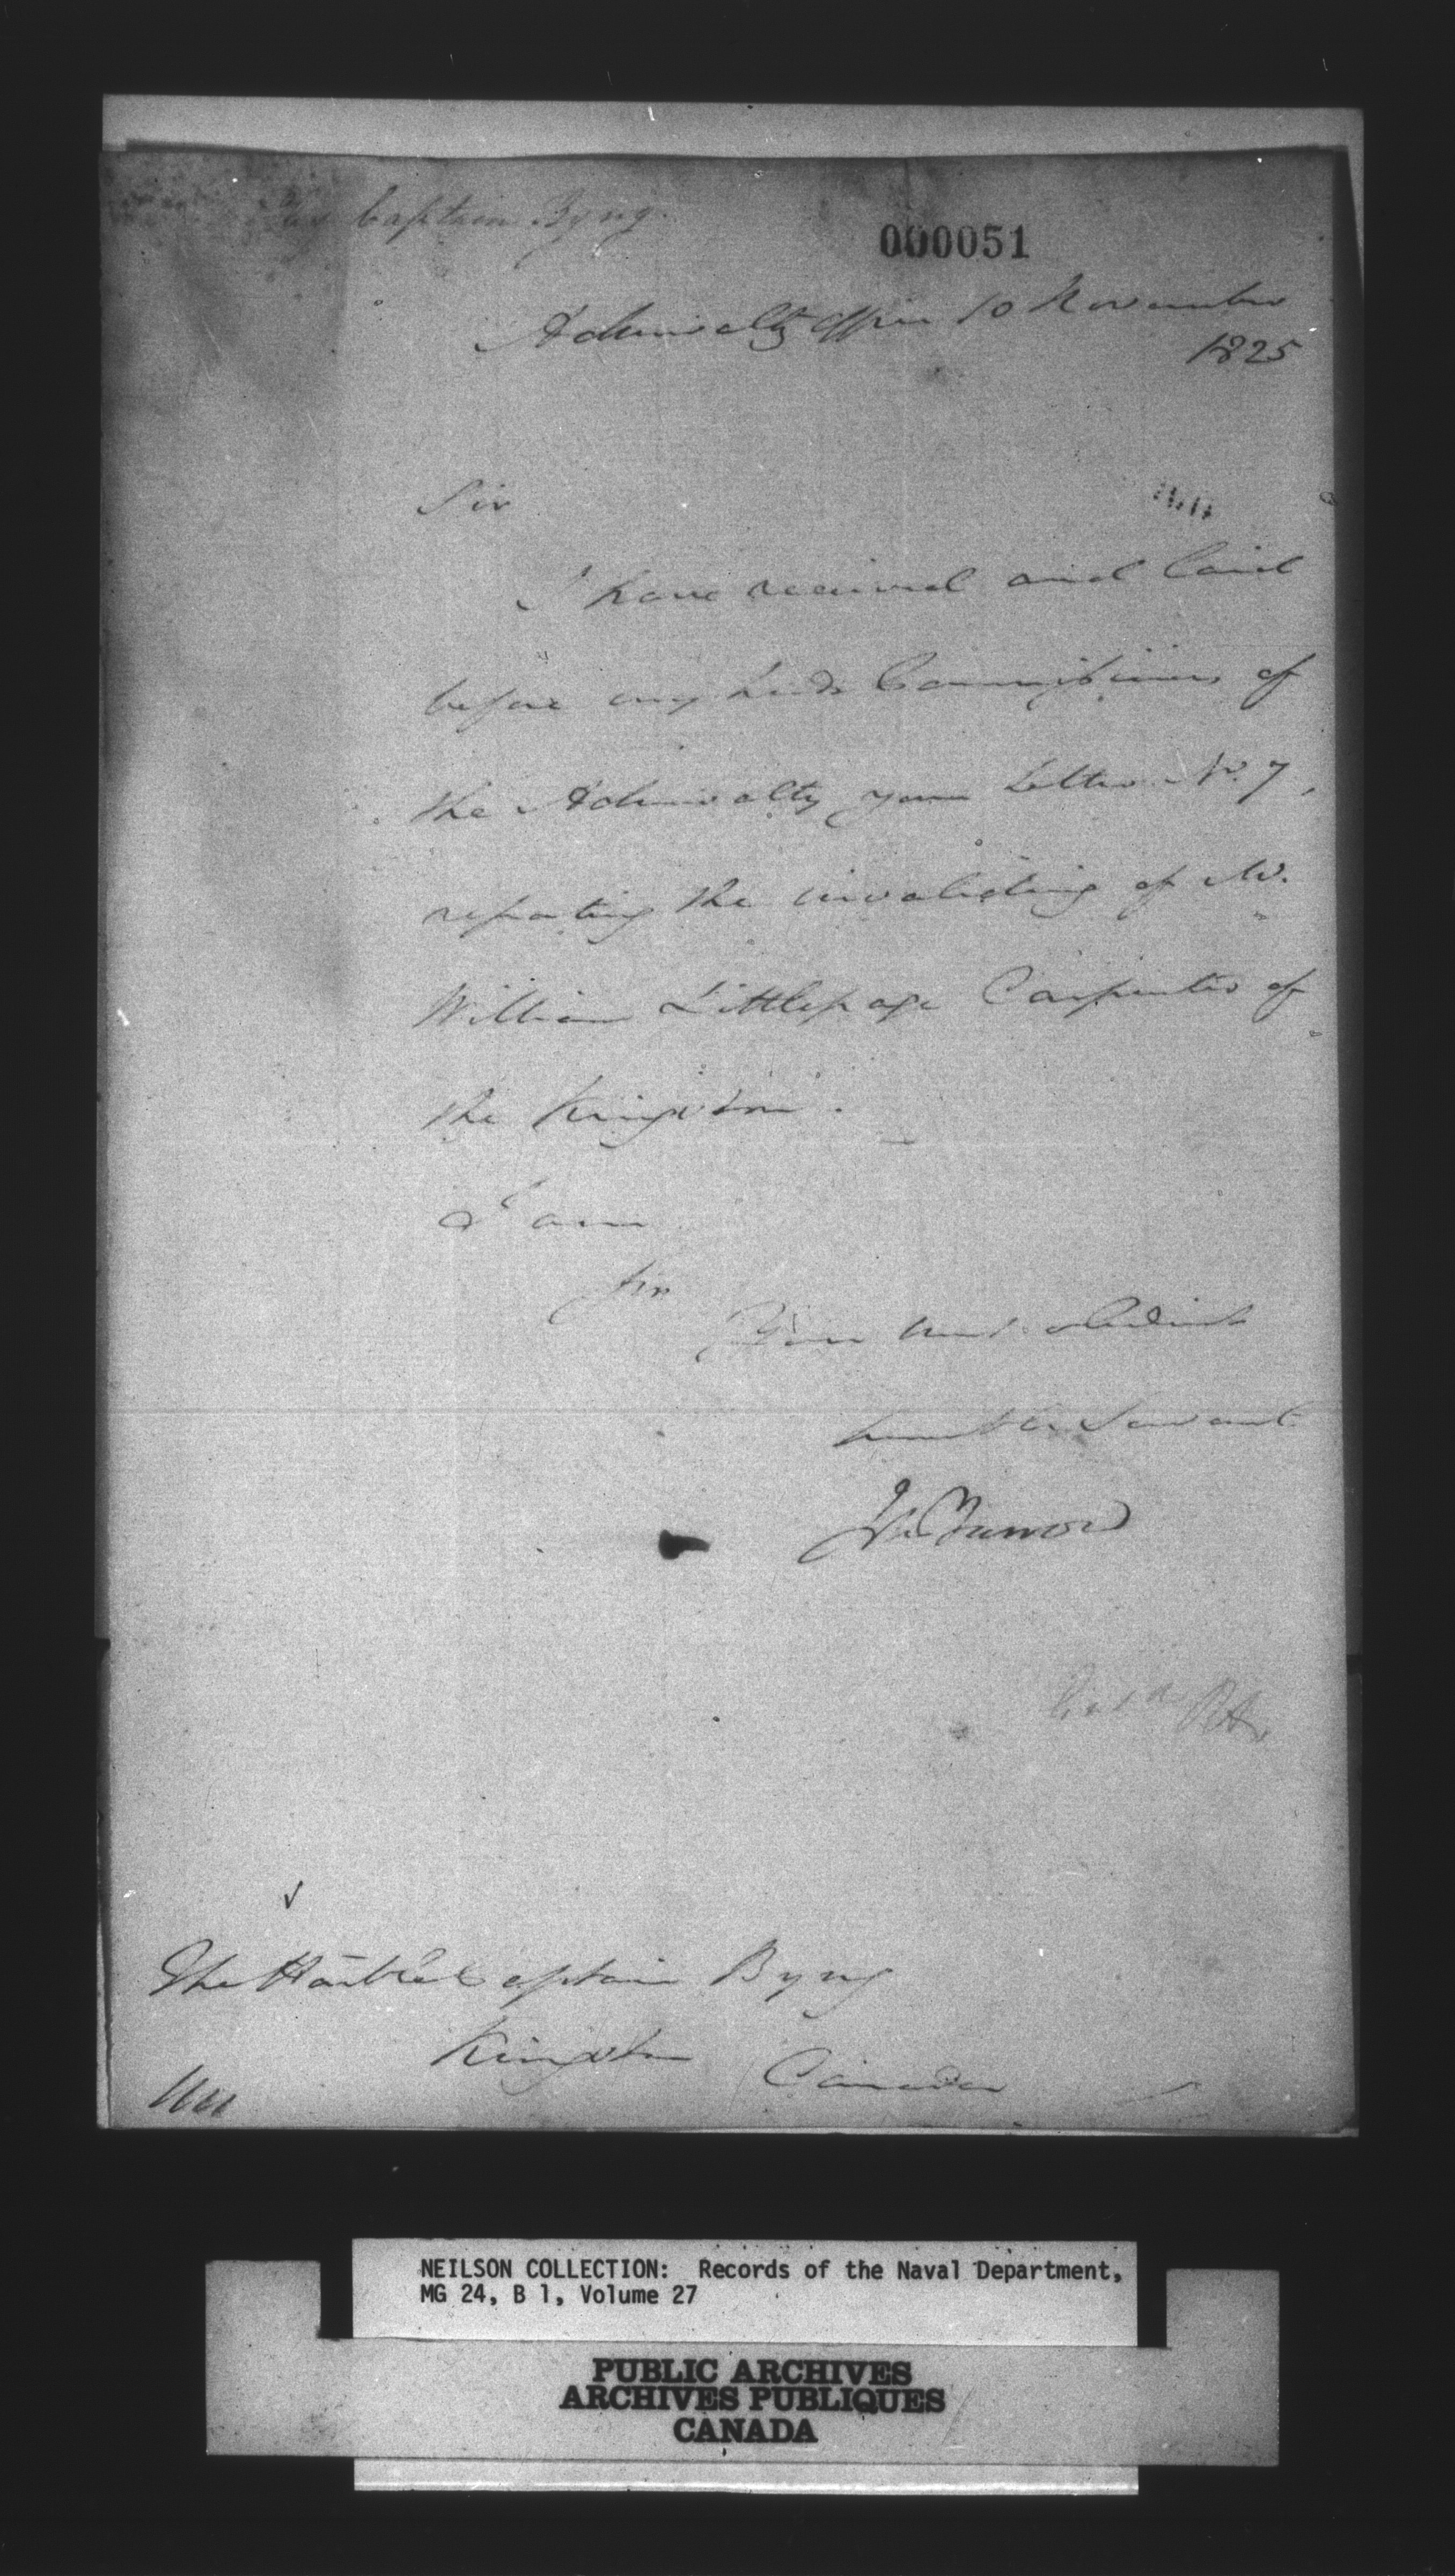 Captain Byng.
000051
Admiralty Office 10 November
1825
Sir
I have received and laid
before my Lords Commissioners of
the Admiralty your Letter No. 7,
reporting the invaliding of Mr.
William Littlepage Carpenter of
the Kingston.
I am
Sir
Your most obedient
humble Servant
Jn Barrow
The Honble Captain Byng
Kingston
Canada
NEILSON COLLECTION: Records of the Naval Department,
MG 24, B 1, Volume 27
PUBLIC ARCHIVES
ARCHIVES PUBLIQUES
CANADA